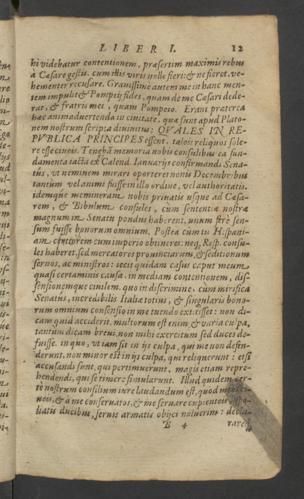 LIBER I. 12
hi videbatur contentionem, præsertim maximis rebus
à Cæsare gestis, cum illis viris nolle fieri: & ne fieret, ve-
hementer recusare. Grauissimè autem me in hanc men-
tem impulit & Pompeij fides, quam de me Cæsari dede-
rat, & fratris mei, quam Pompeio. Erant præterea
hæc animaduertenda in ciuitate, quæ sunt apud Plato-
nem nostrum scripta diuinitus: QVALES IN RE-
PVBLICA PRINCIPES essent, tales reliquos sole-
re esse ciueis. Tenebã memoria nobis consulibus ea fun-
damenta iacta ex Calend. Ianuarijs confirmandi Sena-
tus, vt neminem mirari oporteret nonis Decembribus
tantum vel animi fuisse in illo ordine, vel authoritatis.
idemque memineram nobis priuatis usque ad Cæsa-
rem, & Bibulum consules, cum sententiæ nostræ
magnum in Senatu pondus haberent, unum ferè sen-
sum fuisse bonorum omnium. Postea cùm tu Hispani-
am citeriorem cum imperio obtineres: neq; Resp. consu-
les haberet, sed mercatores prouinciarum, & seditionum
seruos, ac ministros: iecit quidam casus caput meum
quasi certaminis causa in mediam contentionem, dis-
sensionemque ciuilem. quo in discrimine cùm mirifica
Senatus, incredibilis Italiæ totius, & singularis bono-
rum omnium consensio in me tuendo extitisset: non di-
cam quid acciderit. multorum est enim & varia culpa,
tantum dicam breui, non mihi exercitum sed duces de-
fuisse. in quo, vt iam sit in ijs culpa, qui me non defen-
derunt, non minor est in ijs culpa, qui reliquerunt: etsi
accusandi sunt, qui pertimuerunt, magis etiam repre-
hendendi, qui se timere simularunt. Illud quidem cer-
tè nostrum consilium iure laudandum est, quod
meos, & à me conseruatos, & me seruare cupienteis, spo-
liatos ducibus, seruis armatis obijci noluerim: decla-
B 4 rare